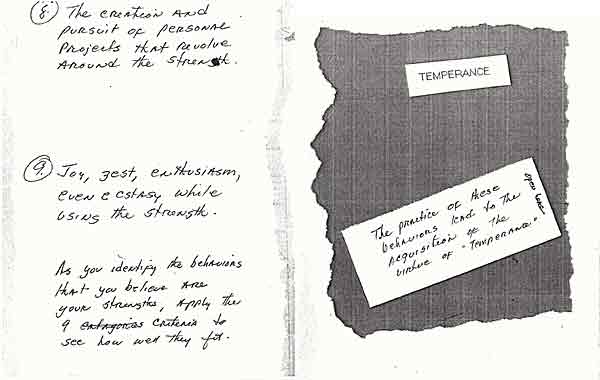 8. The creation and
pursuit of personal
projects that revolve
around the strength.
9. Joy, zest, enthusiasm,
even ecstasy while
using the strength.
As you identify the behaviors
that you believe are
your strengths, apply the
9 categories criteria to
see how well they fit.
TEMPERANCE
The practice of these
behaviors lead to the
acquisition of the
virtue of "Temperance."
open here